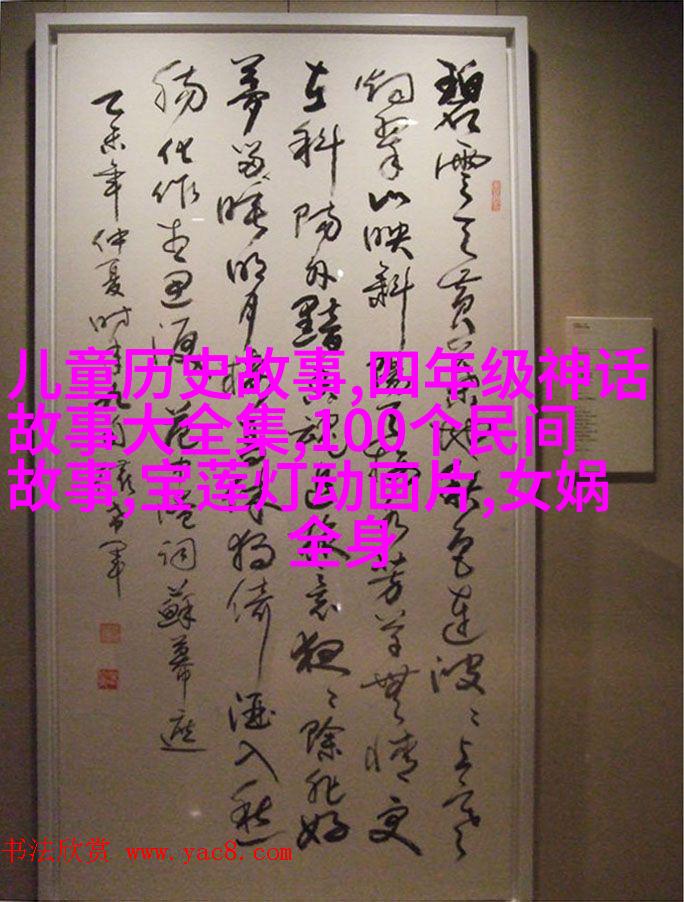 碧雲天黄葉地秋色連波〻上寒
烟翠山映斜陽天接水芳草無情更
在斜陽外黯鄉魂追旅思夜〻除非好
夢留人睡明月樓高休独倚酒入愁
腸化作相思淚范仲淹词蘇幕遮
乙未年仲夏时
儿童历史故事,四年级神话
故事大全集,100个民间
故事,宝莲灯动画片,女娲
全身
书法欣赏 www.yac8.com